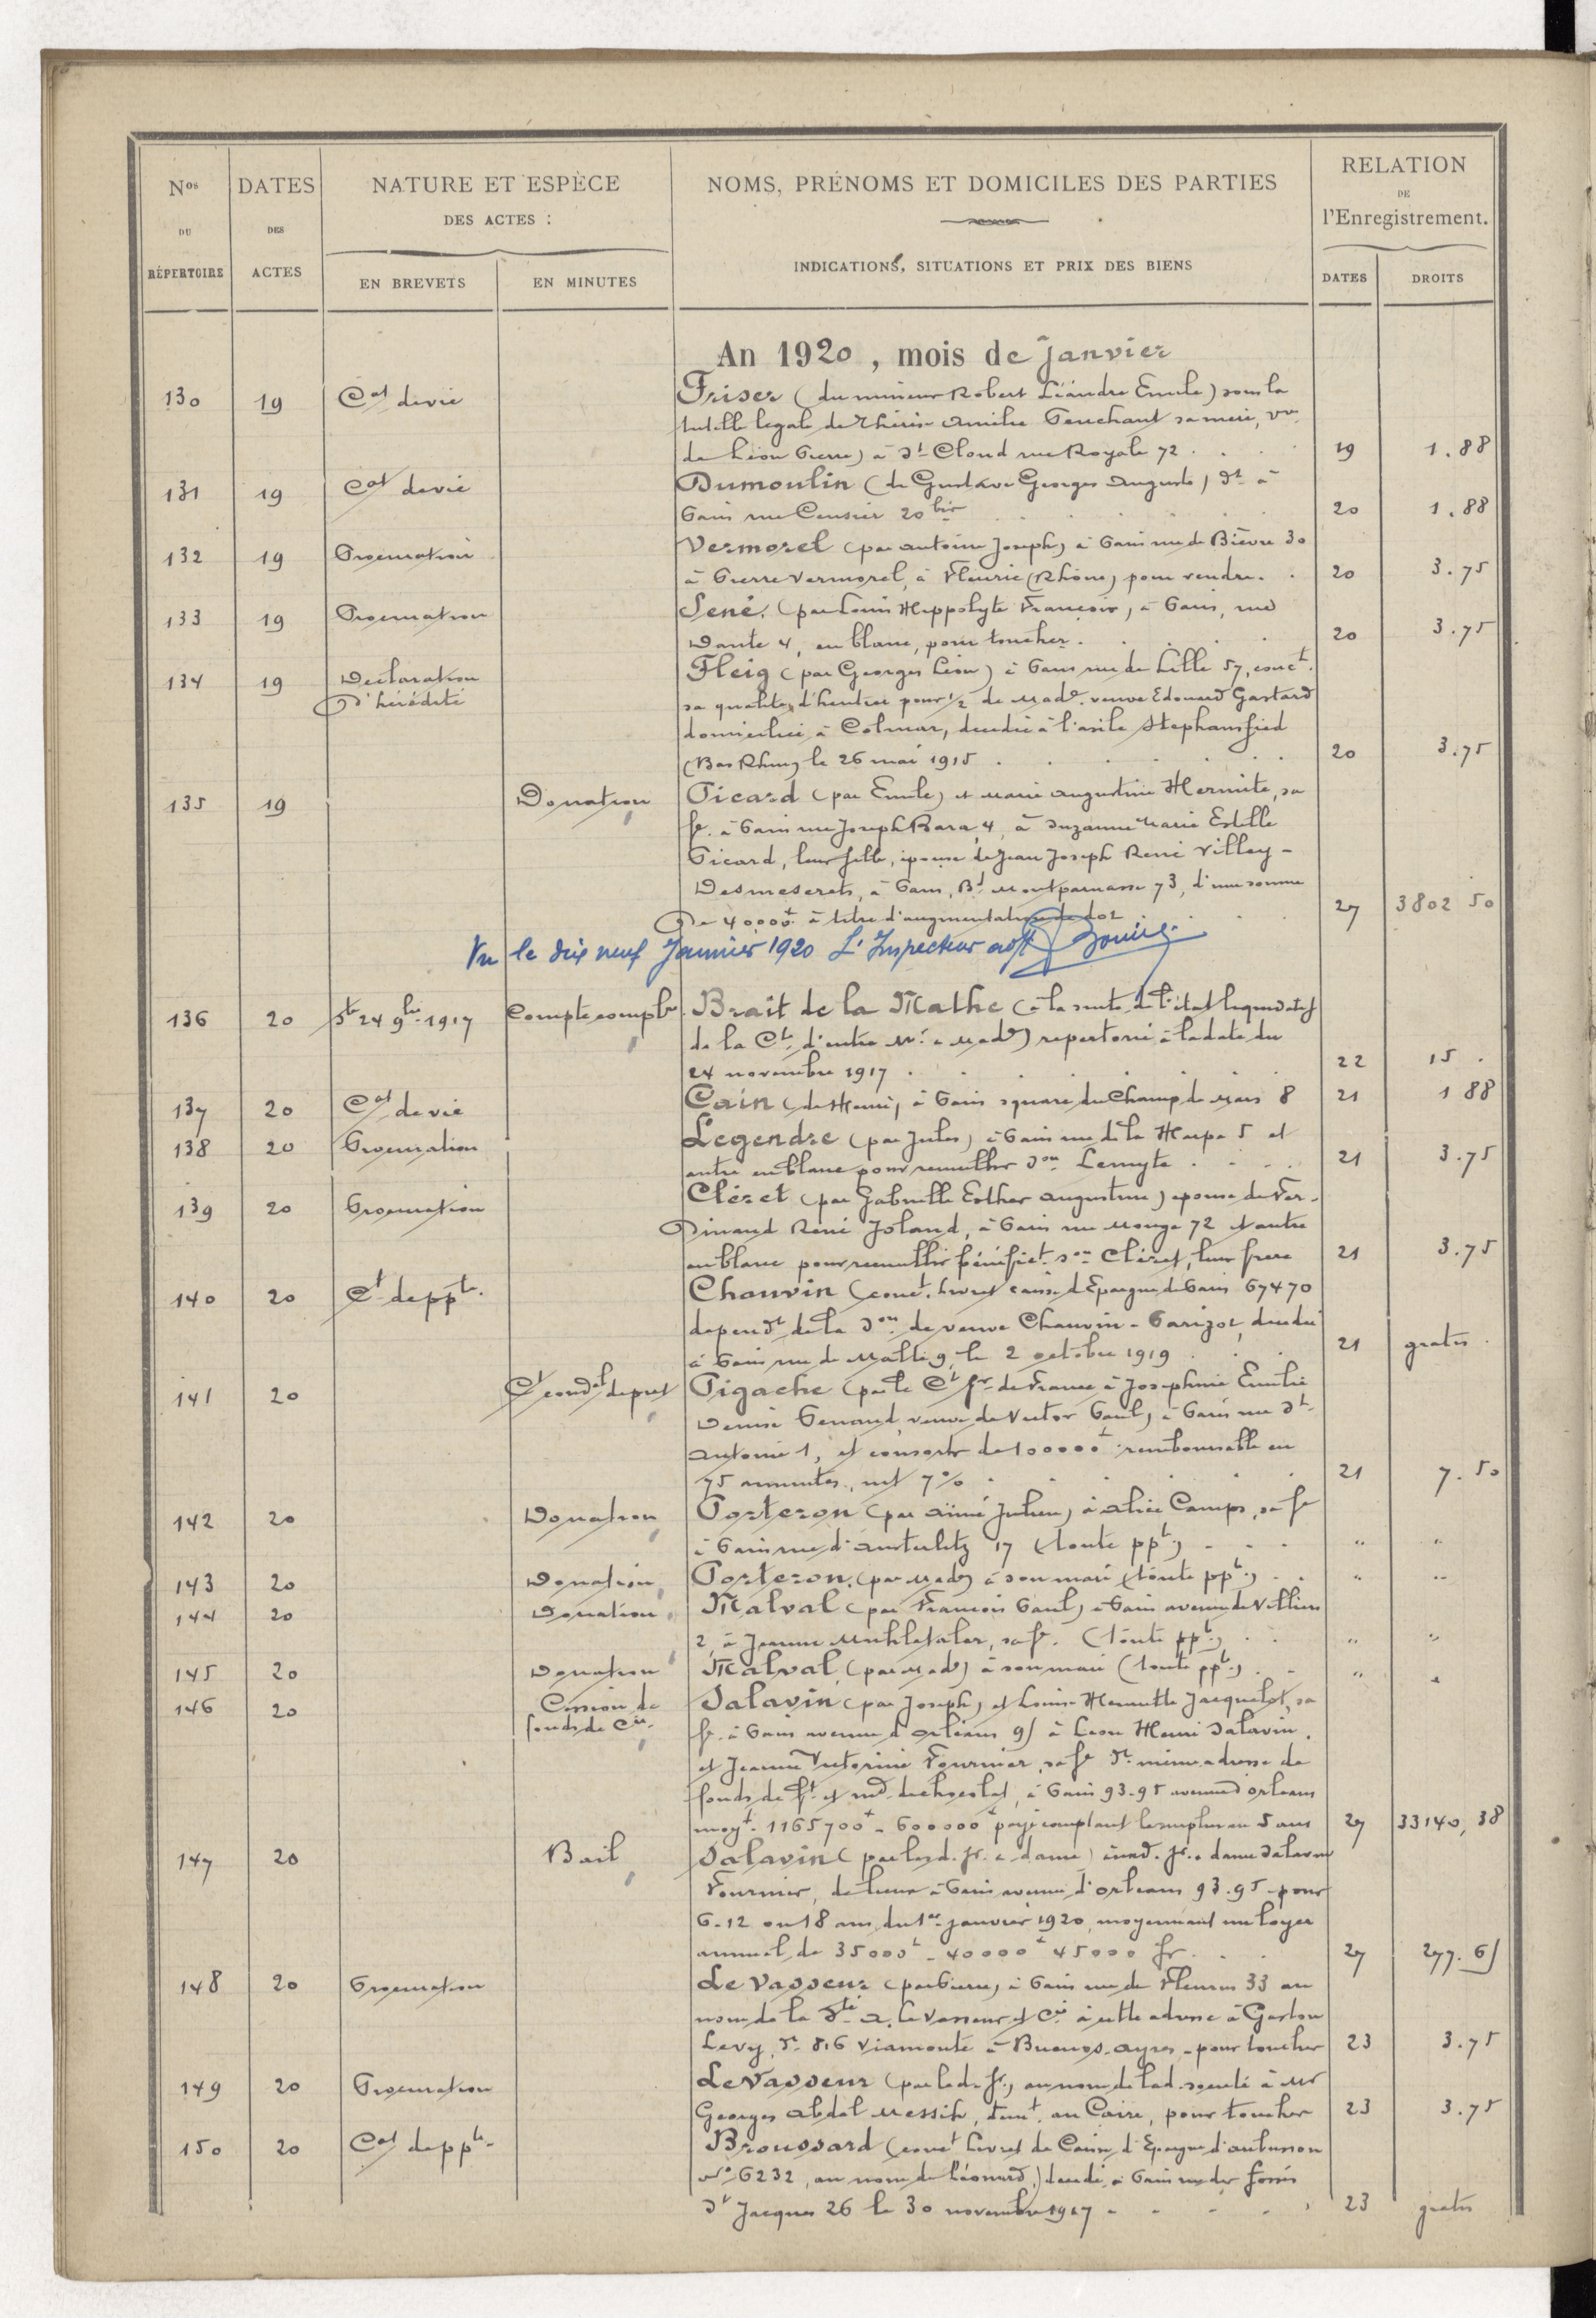 Nos DU RÉPERTOIRE
DATES DES ACTES
NATURE ET ESPÈCE DES ACTES :
EN BREVETS
EN MINUTES
NOMS, PRÉNOMS ET DOMICILES DES PARTIES
INDICATIONS, SITUATIONS ET PRIX DES BIENS
RELATION DE l'Enregistrement.
DATES
DROITS
An 1920, mois de Janvier
130 19 Cat de vie Friser (du mineur Robert Léandre Emile) sous la
tutelle légale de Thérèse Amélie Peuchant sa mère, vve
de Léon Pierre) à St Cloud rue Royale 72 . . . 19 1.88
131 19 Cat de vie Dumoulin (de Gustave Georges Auguste) dt à
Paris rue Censier 20 bis 20 1.88
132 19 Procuration Vermorel (par Antoine Joseph) à Paris rue de Bièvre 30
à Pierre Vermorel, à Fleurie (Rhône) pour vendre. . 20 3.75
133 19 Procuration Sené (par Louis Hippolyte François) à Paris, rue
Dante 4, en blanc, pour toucher . 20 3.75
134 19 Déclaration d'hérédité Fleig (par Georges Léon) à Paris rue de Lille 57, conct.
sa qualité d'héritier pour 1/2 de Made. veuve Edouard Gastard
domiciliée à Colmar, décédée à l'asile Stephansfied
(Bas Rhin) le 26 mai 1915 . 20 3.75
135 19 Donation Picard (par Emile) et Marie Augustine Hermite, sa
fe. à Paris rue Joseph Bara, 4, à Suzanne Marie Estelle
Picard, leur fille, épouse de Jean Joseph René Villey-
Desmeserets, à Paris, Bd Montparnasse 73, d'une somme
de 40000f à titre d'augmentation de dot . 27 3802 50
Vu le dix neuf Janvier 1920 L'Inspecteur adjt
136 20 St 24 9bre 1917 Compte complre. Brait de la Mathe (à la suite de l'état liquidatif
de la Cté d'entre Mr. & Made) répertorié à la date du
24 novembre 1917 . 22 15 .
137 20 Cat de vie Cain (de Henri) à Paris square du Champ de Mars 8 21 1 88
138 20 Procuration Legendre (par Jules) à Paris rue de la Harpe 5 et
autre en blanc pour recueillir son Lemyte . . . 21 3.75
139 20 Procuration Cléret (par Gabrielle Esther Augustine) épouse de Fer-
dinand René Joland, à Paris rue Monge 72 et autre
en blanc pour recueillir bénéfict. son Cléret, leur frère 21 3.75
140 20 Ct de ppté. Chauvin (conct. livret caisse d'Epargne de Paris 67470
dépendt de la son de veuve Chauvin - Parizot, décédée
à Paris rue de Malte 9, le 2 octobre 1919 . . 21 gratis.
141 20 Ct condel de pret Pigache (par le Ct fr de France à Joséphine Emilie
Denise Penand, veuve de Victor Paul) à Paris rue St
Antoine 1, et consorts de 100000f remboursable en
75 annuités, int 7% . 21 7.50
142 20 Donation Porteron (par Aimé Julien) à Alice Camps, sa fe
à Paris rue d'Austerlitz 17 (toute ppté.) . . . " "
143 20 Donation Porteron (par Made) à son mari (toute ppté.) . . " "
144 20 Donation Malval (par François Paul) à Paris avenue de Villiers
2, à Jeanne Muhlstaler, sa fe. (toute ppté.) . . " "
145 20 Donation Malval (par Made) à son mari (toute ppté.) . . " "
146 20 Cession de fonds de Cce. Salavin (par Joseph) et Louise Henriette Jacquelot, sa
fe. à Paris avenue d'Orléans 95 à Léon Henri Salavin
et Jeanne Victorine Fournier, sa fe dt même adresse de
fonds de ft. et md. de chocolat, à Paris 93-95 avenue d'Orléans
moyt. 1165700f - 600000f payé comptant le surplus en 5 ans 27 33140,38
147 20 Bail Salavin (par les d. Sr. & dame) aux d. Sr. & dame Salavin
Fournier, de lieux à Paris avenue d'Orléans 93.95 - pour
6-12 ou 18 ans du 1er janvier 1920, moyennant un loyer
annuel de 35000f - 40000f 45000 fr. . . 27 277.65
148 20 Procuration Le Vasseur (par Pierre) à Paris rue de Fleurus 33 au
nom de la Sté A. Le Vasseur et Cie à cette adresse à Gaston
Levy, dt 816 Viamonte à Buenos-Ayres, - pour toucher 23 3.75
149 20 Procuration Le Vasseur (par le d. Sr.) au nom de lad. société à Mr
Georges Abdel Messih, demt. au Caire, pour toucher 23 3.75
150 20 Cat de ppté. Broussard (conct Livret de Caisse d'Epargne d'Aubusson
No 6232, au nom de Léonard,) décédé à Paris rue des Fossés
St Jacques 26 le 30 novembre 1917 - - - 23 gratis